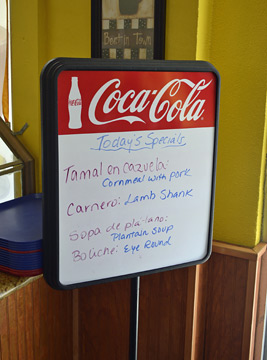 Berlin Town
Coca-Cola
Coca-Cola
Today's Specials
Tamal en cazuela:
Cornmeal with pork
Carnero: Lamb Shank
Sopa de platano:
Plantain soup
Boliche: Eye Round